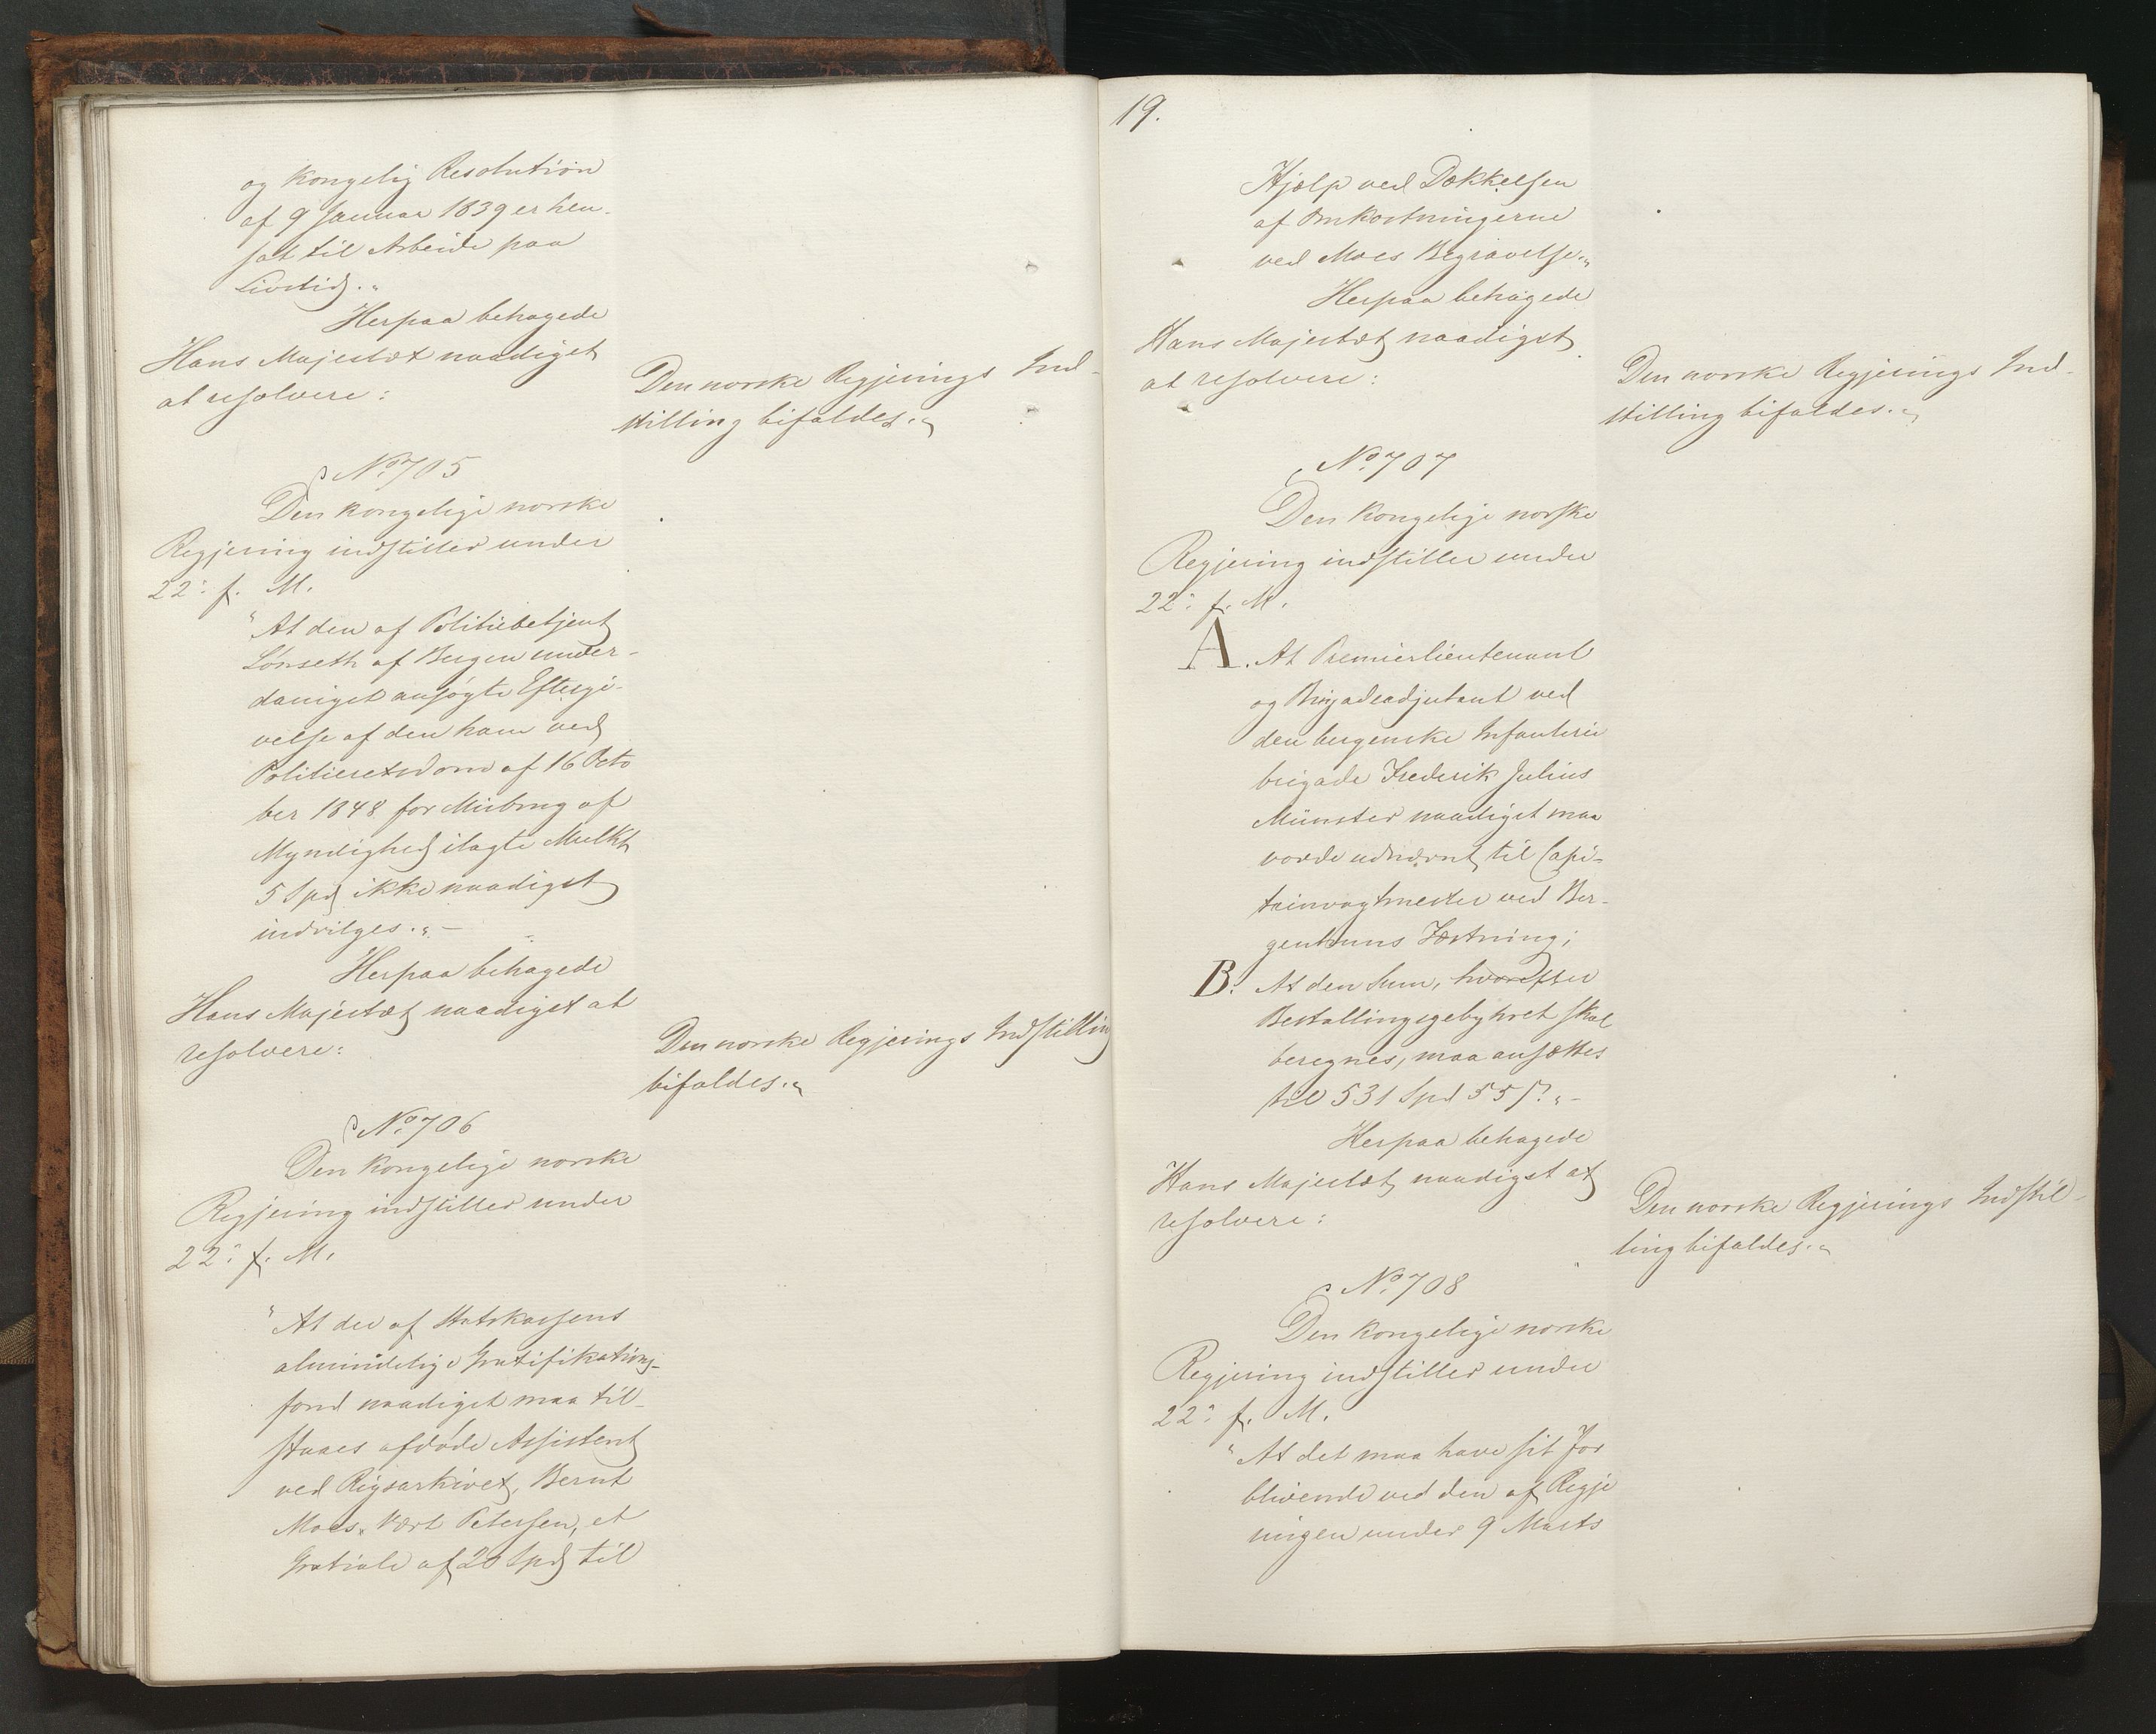 og Kongelig Resolution
af 9 Januar 1839 er hen-
sat til Arbeide paa
Livstid."
Herpaa behagede
Hans Majestæt naadigst
at resolvere:
Den norske Regjerings Ind-
stilling bifaldes."
No. 705
Den kongelige norske
Regjering indstiller under
22. f. M.
"At den af Politiebetjent
Lönseth af Bergen under-
danigst ansøgte Eftergi-
velse af den ham ved
Politieretsdom af 16 Octo
ber 1848 for Misbrug af
Myndighed ilagte Mulkt
5 Spd ikke naadigst
indvilges." -
Herpaa behagede
Hans Majestæt naadigst at
resolvere:
Den norske Regjerings Indstilling
bifaldes."
No. 706
Den Kongelige norske
Regjering indstiller under
22. f. M.
"At der af Statskassens
almindelige Gratifikations-
fond naadigst maa til-
staaes afdøde Assistent
ved Rigsarkivet, Bernt
Moes Vært Petersen, et
Gratiale af 20 Spd til
19.
Hjælp ved Dækkelsen
af Omkostningerne
ved Moes Begravelse."
Herpaa behagede
Hans Majestæt naadigst
at resolvere:
Den norske Regjerings Ind-
stilling bifaldes."
No. 707
Den Kongelige norske
Regjering indstiller under
22. f. M.
A. At Premierlieutenant
og Brigadeadjutant ved
den bergenske Infanterie
brigade Frederik Julius
Münster naadigst maa
vorde udnævnt til Capi-
tainvagtmester ved Ber-
genhuus Fæstning;
B. At den Sum, hvorefter
Bestallingsgebyhret skal
beregnes, maa ansættes
til 531 Spd 55 ſ." -
Herpaa behagede
Hans Majestæt naadigst at
resolvere:
Den norske Regjerings Indstil-
ling bifaldes."
No. 708
Den Kongelige norske
Regjering indstiller under
22. f. M.
"At det maa have sit For
blivende ved den af Regje
ringen under 9 Marts